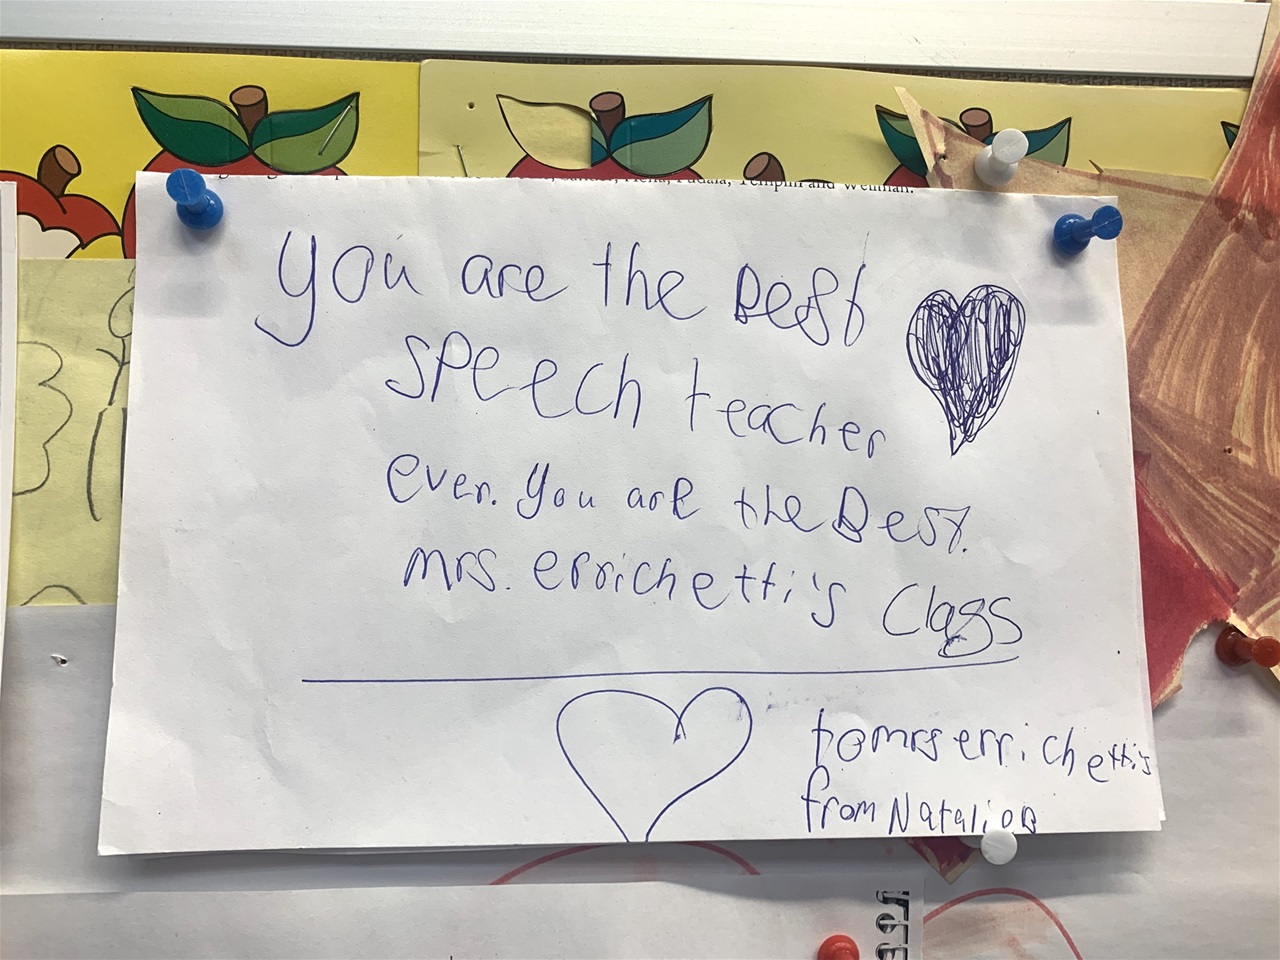 Templin and Wellman.
you are the Best
speech teacher
ever. you are the Best.
mrs. errichetti's Class
to mrs errichetti's
from Natalie B